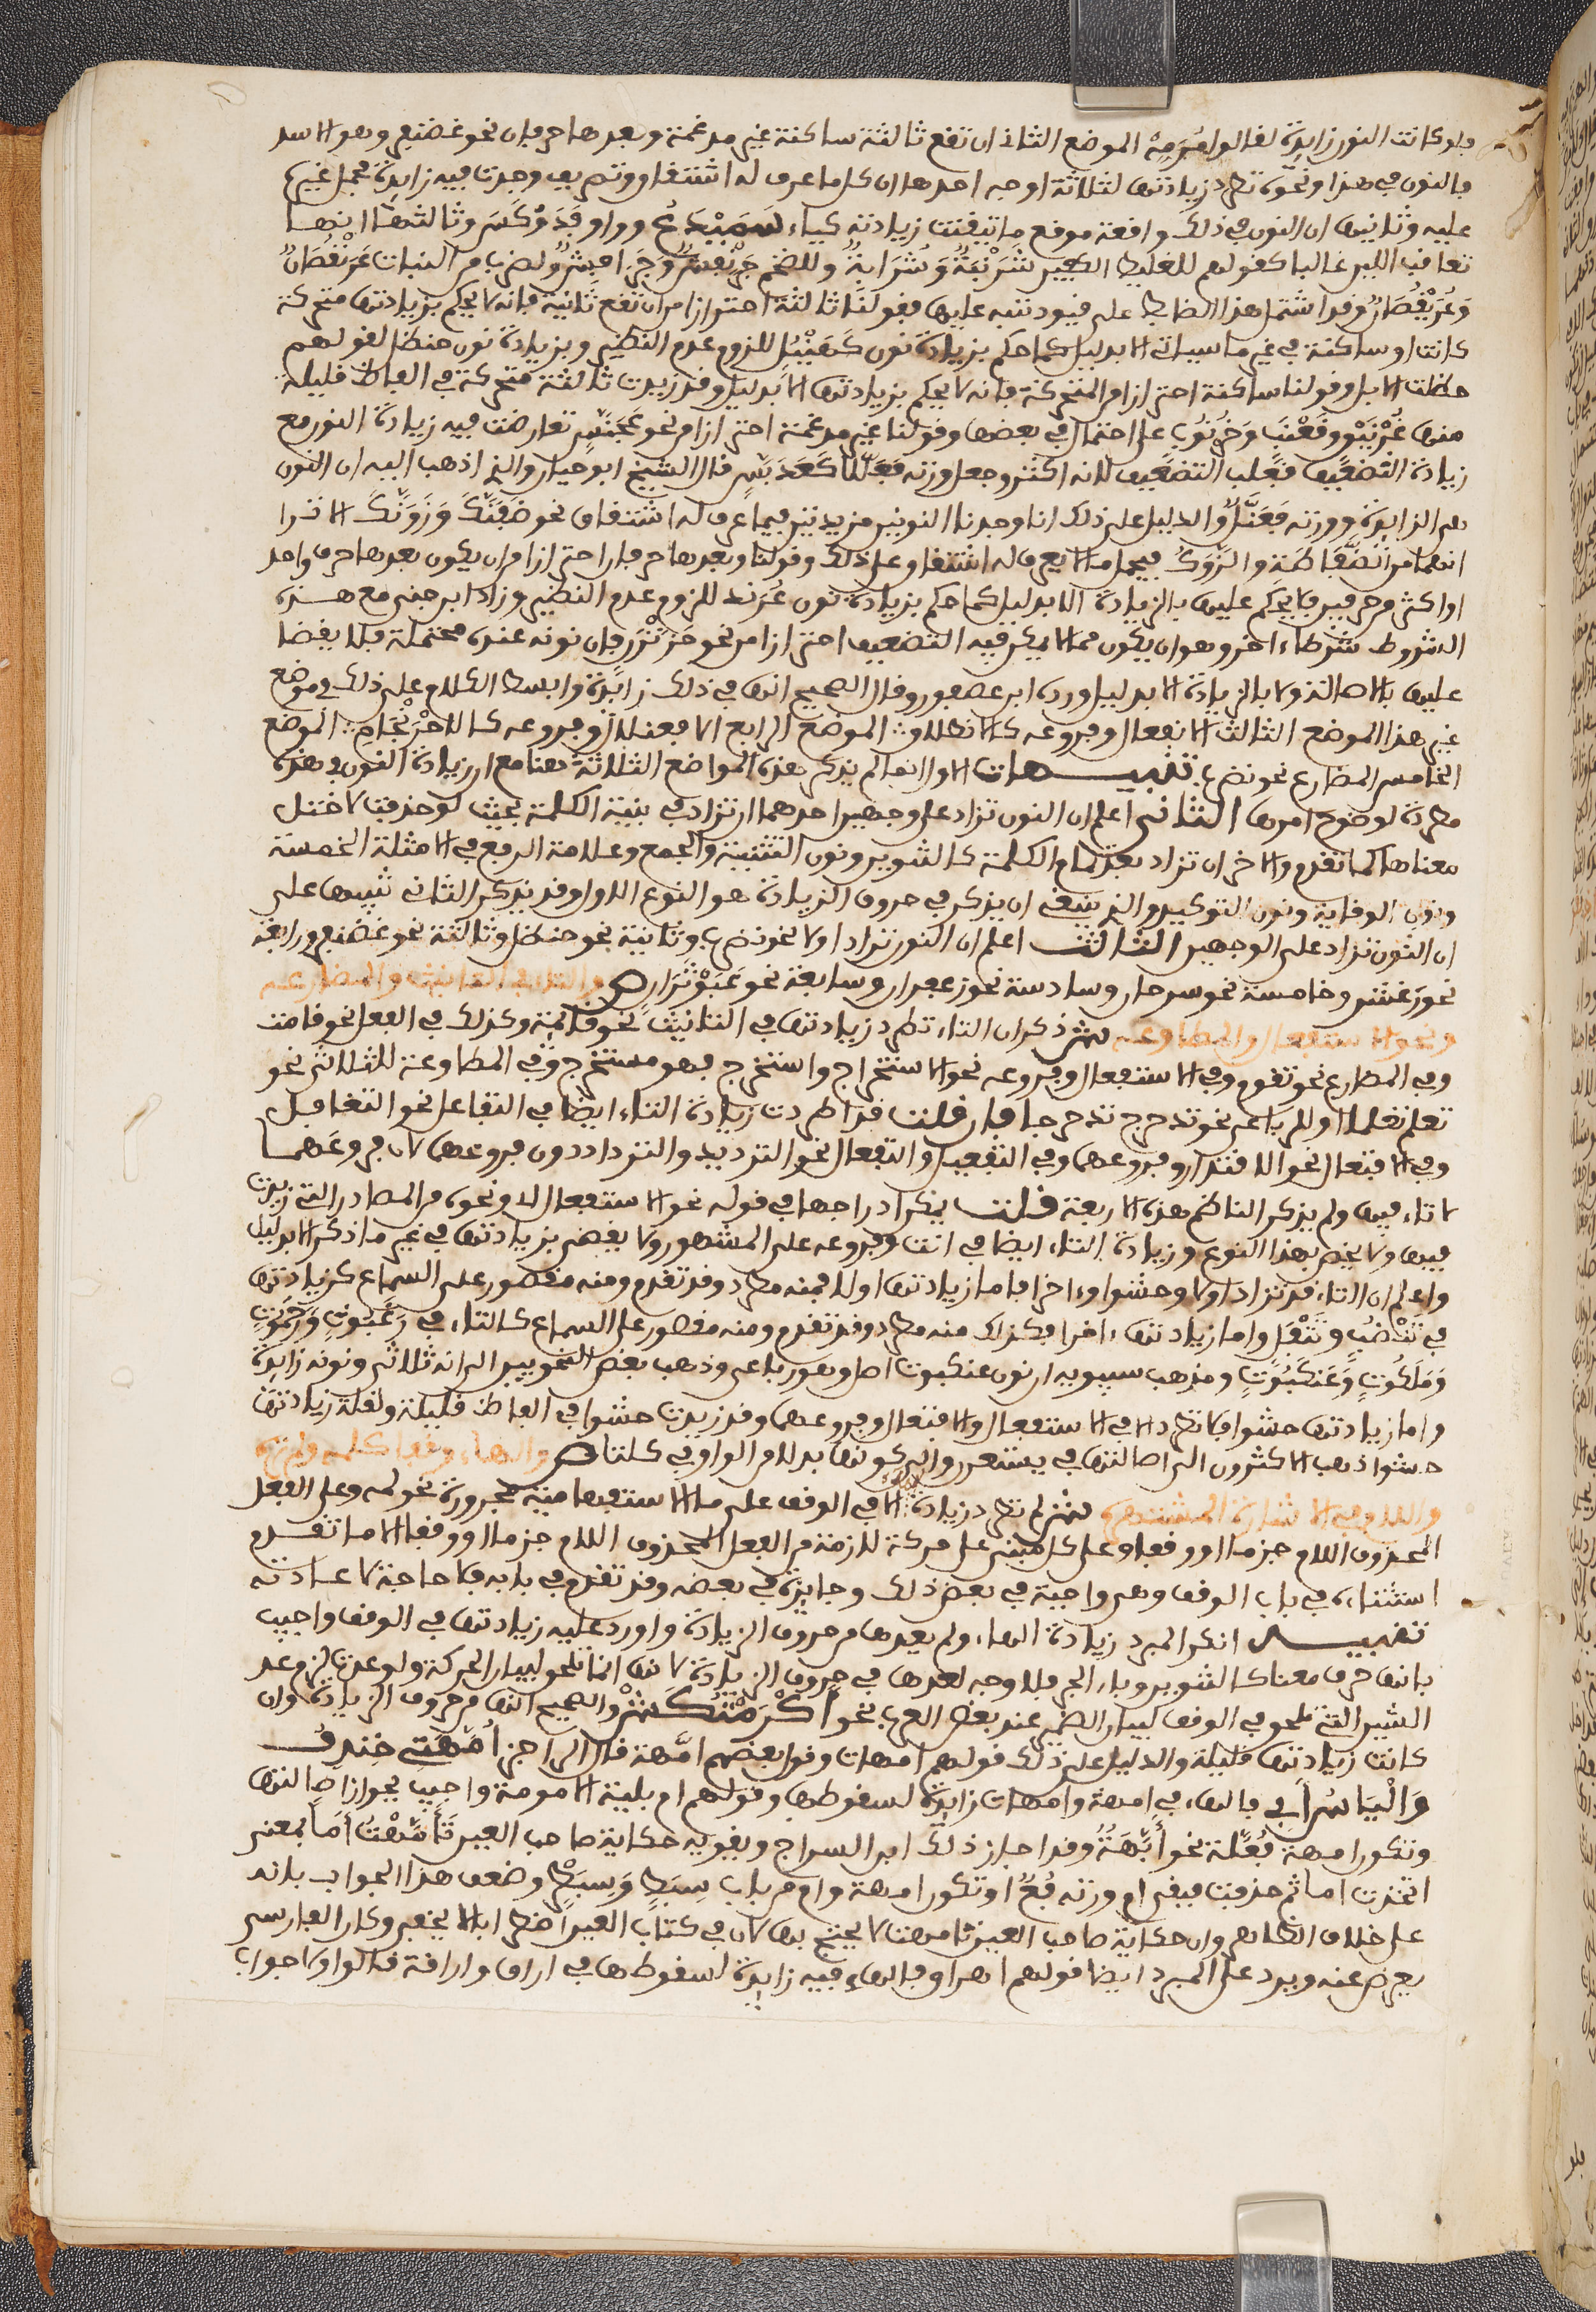 ولو كانت النون زايدة لقالوا مرمة الموضع الثاني ان تقع ثالثة ساكنة غير مدغمة وبعدها حرفان نحو غضنفر وهو الاسد
فالنون في هذا ونحوه تطرد زيادتها لثلاثة اوجه احدها ان كل ما عرف له اشتقاق وتصريف وجدت فيه زايدة فحمل غيره
عليه وثانيها ان النون في ذلك واقعة موقع ما تيقنت زيادته كياء سَمَيْدَعٍ وواو فَدَوْكَسٍ وثالثها انها
تعاقب اللين غالبا كقولهم للغليظ الكفين شَرَنْبَثٌ وَشُرَابِثٌ وللضخم جَرَنْفَشٌ وَجُرَافِشٌ ولضرب من النبات عَرَنْقُصَانٌ
وَعُرَيْقُصَانٌ وقد اشتمل هذا الضابط على قيود تنبه عليها فقولنا ثالثة احترازا من ان تقع ثانية فانه لا يحكم بزيادتها متحركة
كانت او ساكنة في غير ما سياتي الا بدليل كما حكم بزيادة نون كَنَهْبُلٍ للزوم عدم النظير وبزيادة نون حنظل لقولهم
حظلت الابل وقولنا ساكنة احترازا من المتحركة فانه لا يحكم بزيادتها الا بدليل وقد زيدت ثالثة متحركة في الفاظ قليلة
منها غُرْنَيْق وَخُرْنُوب على احتمال في بعضها وقولنا غير مدغمة احترازا من نحو عَجَنَّسٍ تعارضت فيه زيادة النون مع
زيادة التضعيف فغلب التضعيف لانه اكثر وجعل وزنه فَعَلَّلا كَعَدَبَّسٍ قال الشيخ ابو حيان والذي اذهب اليه ان النون
هي الزايدة ووزنه فَعَنَّلٌ والدليل على ذلك انا وجدنا النونين مزيدتين فيما عرف له اشتقاق نحو ضَفَنَّكَ وَزَوَنَّكَ الا ترا
انهما من الضَّفَاطَة والزَّوْكُ فيحمل ما لا يعرف له اشتقاق على ذلك وقولنا وبعدها حرفان احترازا من ان يكون بعدها حرف واحد
او اكثر من حرفين فلا يحكم عليها بالزيادة الا بدليل كما حكم بزيادة نون عُرُنْد للزوم عدم النظير وزاد ابن جني مع هذه
الشروط شرطا اخر وهو ان يكون مما لا يمكن فيه التضعيف احترازا من نحو خَزَنْزَر فان نونه عنده محتملة فلا يقضا
عليها بالاصالة ولا بالزيادة الا بدليل ورده ابن عصفور وقال الصحيح انها في ذلك زايدة وابسط الكلام على ذلك في موضع
غير هذا الموضع الثالث الانفعال وفروعه كالانطلاق∴ الموضع الرابع الافعنلال وفروعه كالاحْرِنْجَامِ∴ الموضع
الخامس المضارع نحو نضرب تنبيـــهات الاول انما لم يذكر هذه المواضع الثلاثة هنا مع ان زيادة النون في هذه
مطردة لوضوح امرها الثاني اعلم ان النون تزاد على وجهين احدهما ان تزاد في بنية الكلمة بحيث لو حذفت لاختل
معناها كما تقدم والاخر ان تزاد بعد تمام الكلمة كالتنوين ونون التثنية والجمع وعلامة الرفع في الامثلة الخمسة
ونون الوقاية ونون التوكيد والذي ينبغي ان يذكر في حروف الزيادة هو النوع الاول وقد يذكر الثاني تنبيها على
ان النون تزاد على الوجهين الثالث اعلم ان النون تزاد اولا نحو نضرب وثانية نحو حنظل وثالثة نحو غضنفر ورابعة
نحو رَعْشن وخامسة نحو سرحان وسادسة نحو زعفران وسابعة نحو عَبَوْثُرَان ص والتاء في التانيث والمضارعه
ونحو الاستفعال والمطاوعه ش ذكر ان التاء تطرد زيادتها في التانيث نحو قايمة وكذلك في الفعل نحو قامت
وفي المضارع نحو تقوم وفي الاستفعال وفروعه نحو الاستخراج واستخرج فهو مستخرج وفي المطاوعة للثلاثي نحو
تعلم تعلما او للرباعي نحو تدحرج تدحرجا فان قلت قد اطردت زيادة التاء ايضا في التفاعل نحو التغافل
وفي الافتعال نحو الاقتدار وفروعهما وفي التفعيل والتفعال نحو الترديد والترداد دون فروعهما لان فروعهما
لا تاء فيها ولم يذكر الناظم هذه الاربعة قلت يمكن ادراجها في قوله نحو الاستفعال الا ونحوه من المصادر التي زيدت
فيها ولا يخص بهذا النوع وزيادة التاء ايضا في انت وفروعه على المشهور ولا يقضى بزيادتها في غير ما ذكر الا بدليل
واعلم ان التاء قد تزاد اولا وحشوا واخرا فاما زيادتها اولا فمنه مطرد وقد تقدم ومنه مقصور على السماع كزيادتها
في تَنْضُبُ وَتَتْفُل واما زيادتها اخرا فكذلك منه مطرد وقد تقدم ومنه مقصور على السماع كالتاء في رَغَبُوتٍ وَرَحَمُوتٍ
وَمَلَكُوتٍ وَعَنْكَبُوتٍ ومذهب سيبويه ان نون عنكبوت اصل وهو رباعي وذهب بعض النحويين الى انه ثلاثي ونونه زايدة
واما زيادتها حشوا فلا تطرد الا في الاستفعال والافتعال وفروعهما وقد زيدت حشوا في الفاظ قليلة ولقلة زيادتها
حشوا ذهب الاكثرون الى اصالتها في يستعور والى كونها بدلا من الواو في كلتا ص والهاء وقفا كلمه ولم تره
واللام في الاشارة المشتهره ش لم تطرد زيادة الا في الوقف على ما الاستفهامية مجرورة نحو لمه وعلى الفعل
المحذوف اللام جزما او وقفا وعلى كل مبني على حركة لازمة من الفعل المحذوف اللام جزما او وقفا الا ما تقدم
استثناؤه في باب الوقف وهي واجبة في بعض ذلك وجايزة في بعضه وقد تقدم في بابه فلا حاجة لاعادته
تنبيـــه انكر المبرد زيادة الهاء ولم يعدها من حروف الزيادة واورد عليه زيادتها في الوقف واجيب
بانها حرف معنا كالتنوين وباء الجر فلا وجه لعدها في حروف الزيادة لانها انما تلحق لبيان الحركة ولو عدت لزم عد
الشين التي تلحق في الوقف لبيان الضمير عند بعض العرب نحو أَكْرَمْتُكِشْ والصحيح انها من حروف الزيادة وان
كانت زيادتها قليلة والدليل على ذلك قولهم امهات وقول بعضهم امَّهة قال الراجز أُمَّهَتِي خِنْدِفُ
وَالْيَاسُ أَبِي فالهاء في امهة وامهات زايدة لسقوطها وقولهم ام بلينة الامومة واجيب بجواز اصالتها
وتكون امهة فُعَّلَة نحو أُبَّهَةٌ وقد اجاز ذلك ابن السراج ويقويه حكاية صاحب العين تَأَمَّهْتُ أُمّاً بمعنى
اتخذت اما ثم حذفت فبقي ام ووزنه فُعٌّ او تكون امهة وام من باب سِبَطٍ وَسِبَطْرٍ وضعف هذا الجواب بانه
على خلاف الظاهر وان حكاية صاحب العين تامهت لا يحتج بها لان في كتاب العين اضطرابا لا يخفى وكان الفارسي
يعرض عنه ويرد على المبرد ايضا قولهم اهراق فالهاء فيه زايدة لسقوطها في اراق واراقة قالوا ولا جواب